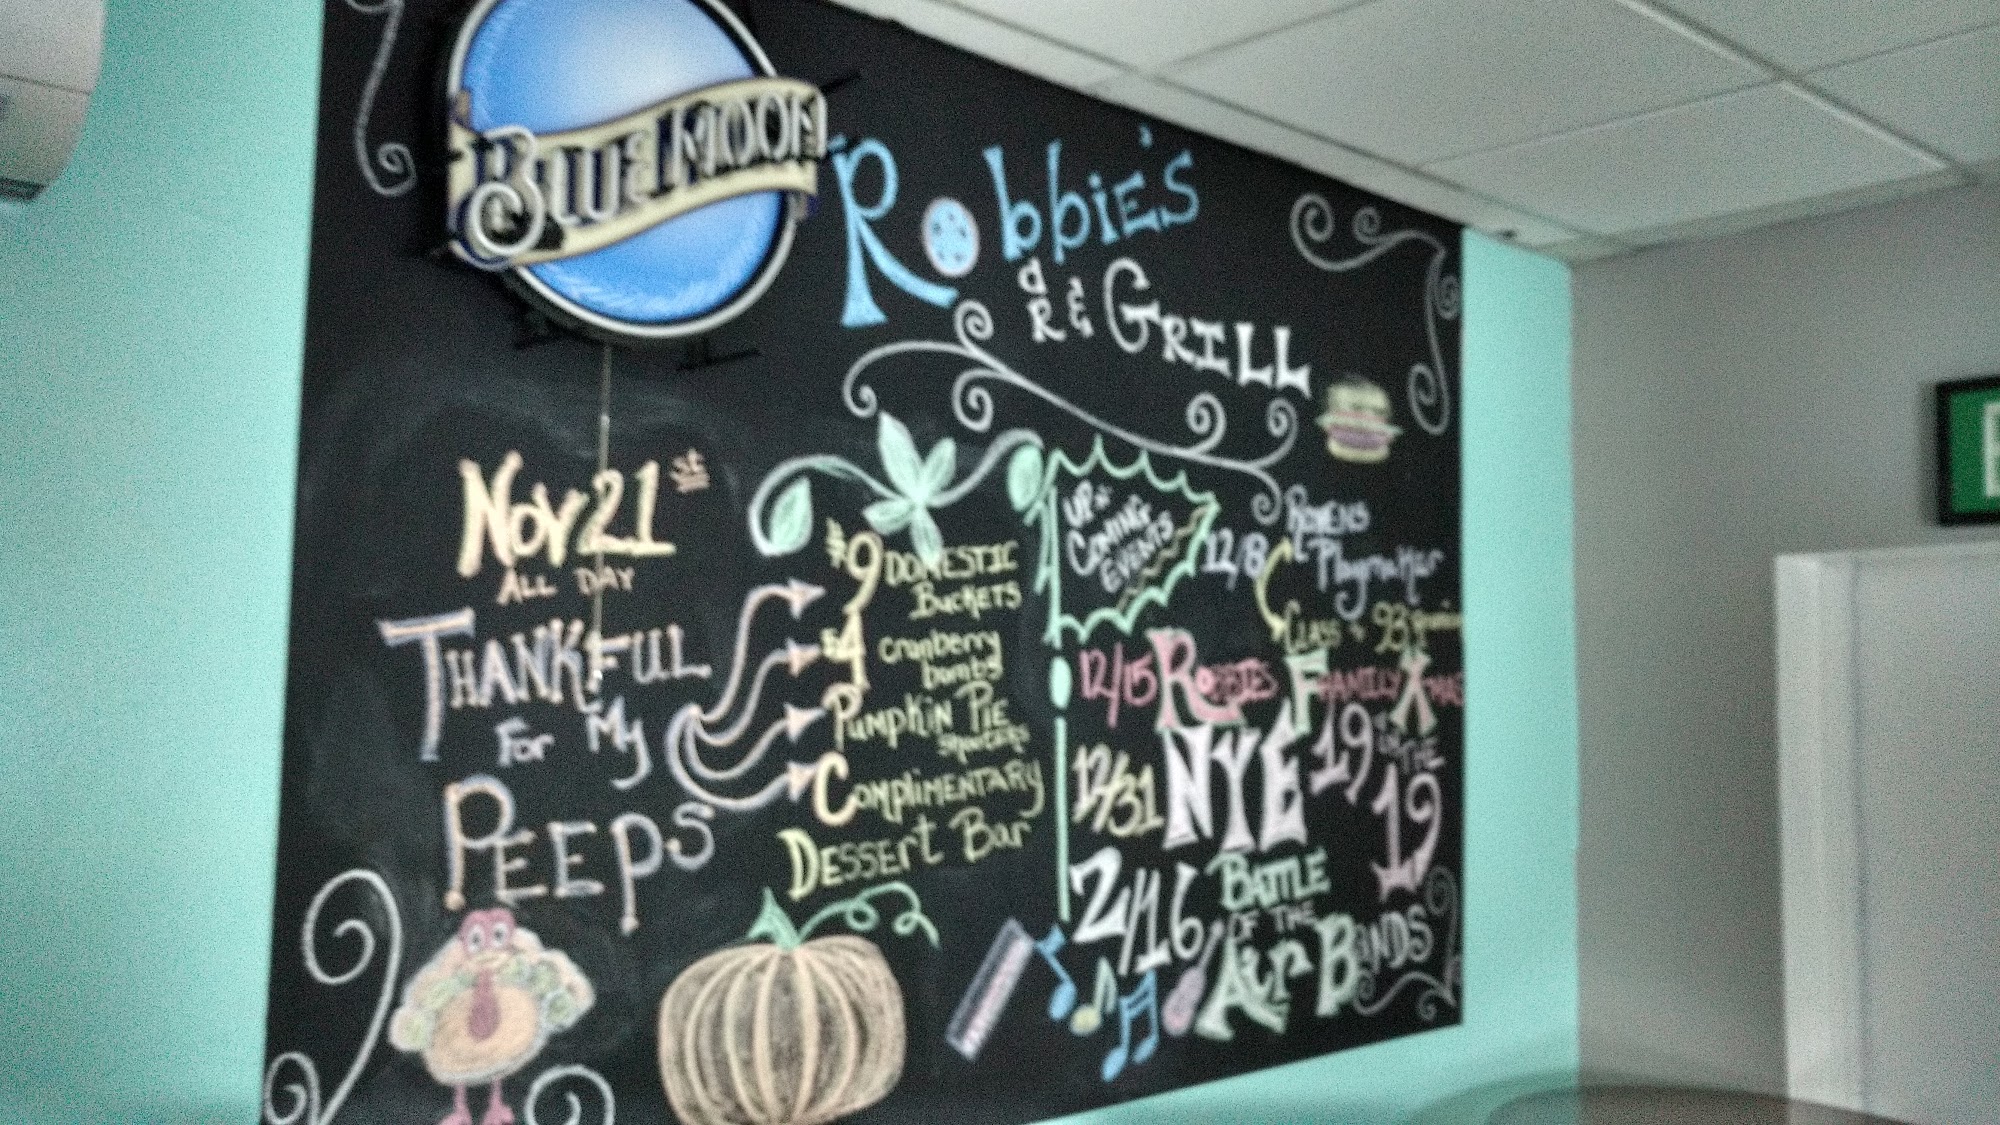 BLUE MOON
Robbie's
& GRILL
Nov 21st
ALL DAY
THANKFUL
For My
PEEPS
$9 DOMESTIC
BUCKETS
$4 cranberry
bombs
PUMPKIN PIE
shooters
COMPLIMENTARY
DESSERT Bar
UP
COMING
EVENTS
12/8 RAVENS
Playmaker
CLASS
12/15 ROBBIES FAMILY XMAS
12/31 NYE 19 THE
19
2/16 BATTLE
OF THE
AIR BANDS